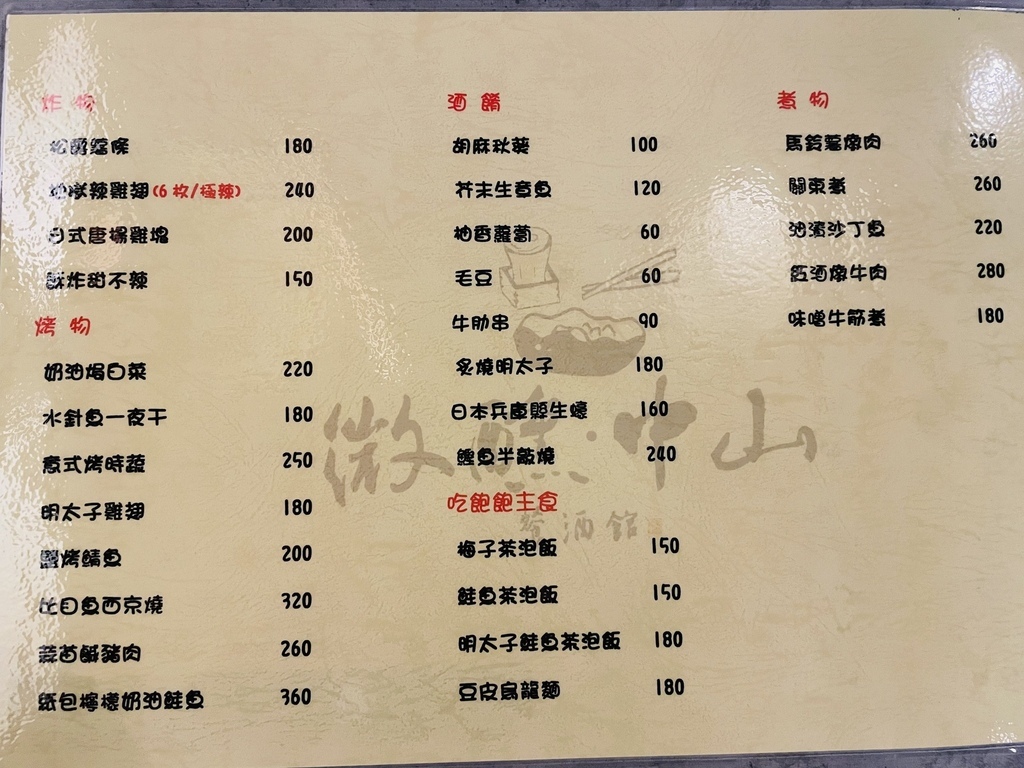 炸物
松露薯條 180
辣雞翅(6枚/極辣) 240
日式唐揚雞塊 200
酥炸甜不辣 150
烤物
奶油焗白菜 220
水針魚一夜干 180
意式烤時蔬 250
明太子雞翅 180
鹽烤鯖魚 200
比目魚西京燒 320
蒜苗鹹豬肉 260
紙包檸檬奶油鮭魚 360
酒餚
胡麻秋葵 100
芥末生章魚 120
柚香蘿蔔 60
毛豆 60
牛肋串 90
炙燒明太子 180
日本兵庫縣生蠔 160
鰹魚半敲燒 240
吃飽飽主食
梅子茶泡飯 150
鮭魚茶泡飯 150
明太子鮭魚茶泡飯 180
豆皮烏龍麵 180
煮物
馬鈴薯燉肉 260
關東煮 260
油漬沙丁魚 220
紅酒燉牛肉 280
味噌牛筋煮 180
微醺·中山
餐酒館